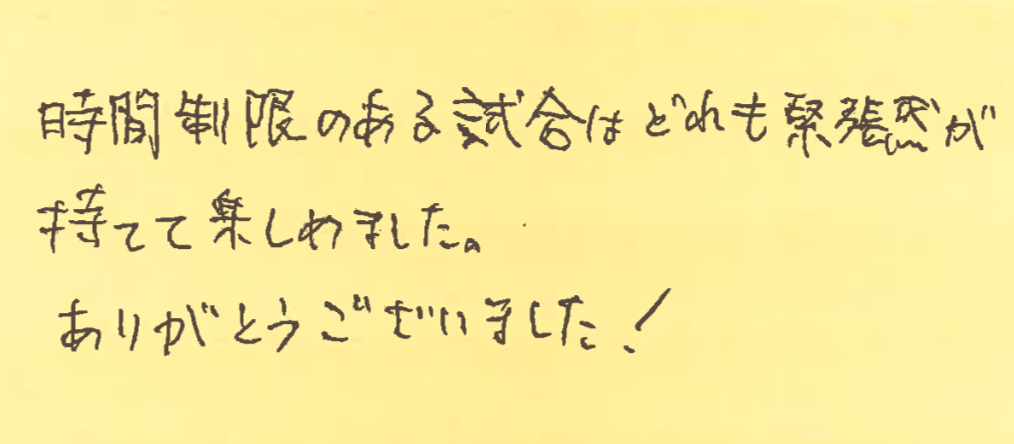 時間制限のある試合はどれも緊張感が
持てて楽しめました。
ありがとうございました！